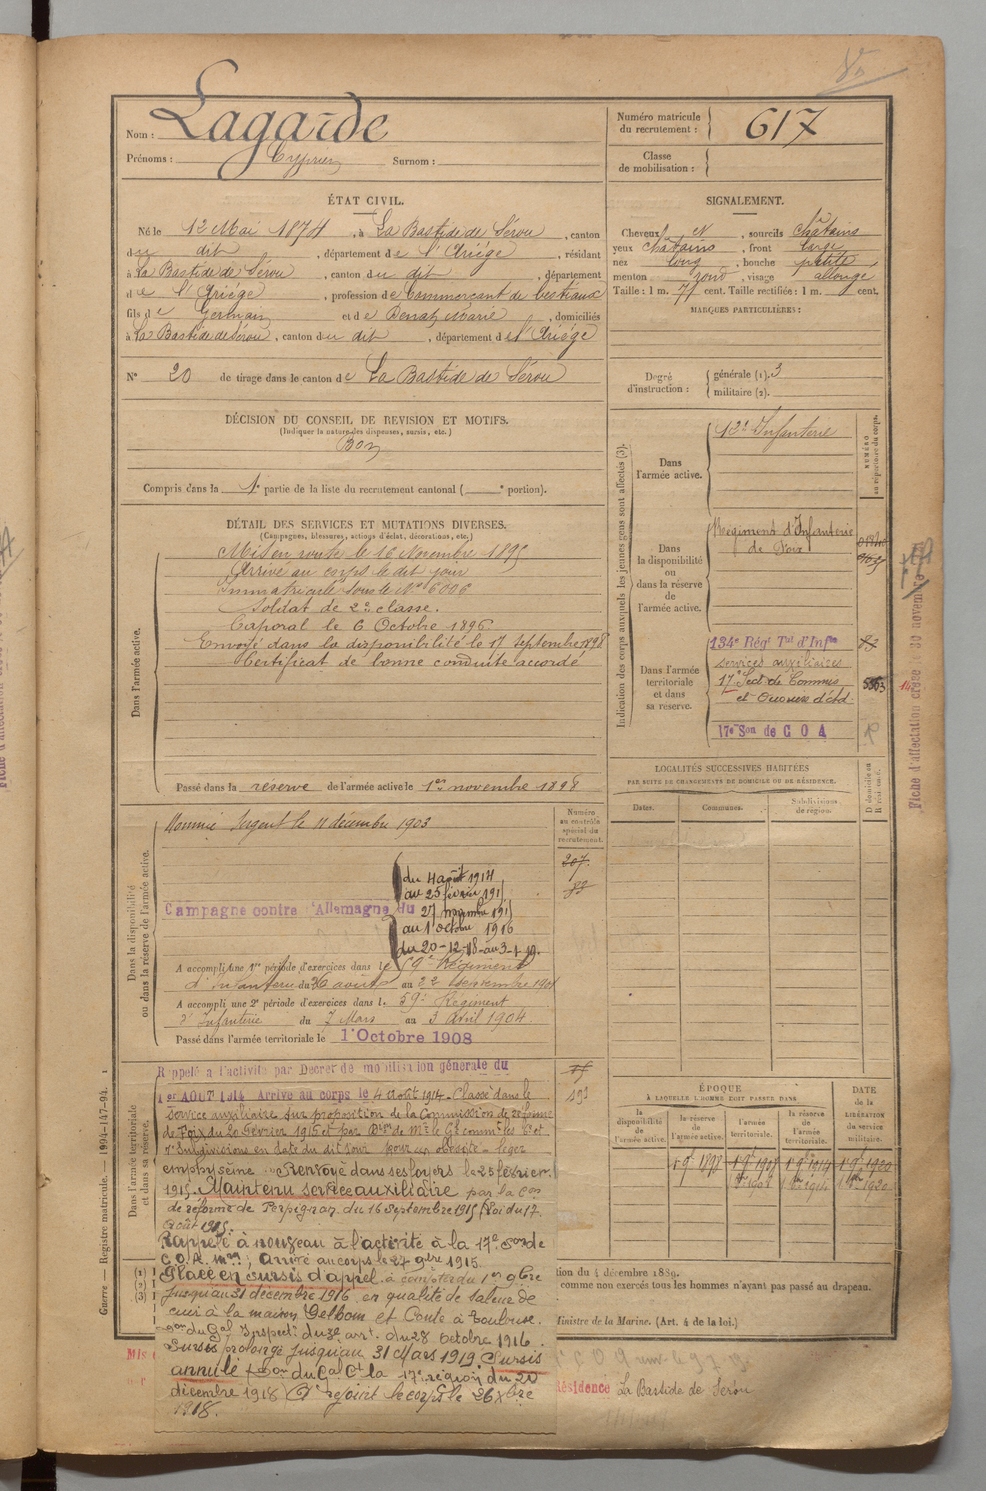 Nom : Lagarde
Prénoms : Cyprien Surnom :
Numéro matricule du recrutement : 617
Classe de mobilisation :
ÉTAT CIVIL.
Né le 12 Mai 1874, à La Bastide de Sérou, canton
du dit, département de l'Ariège, résidant
à La Bastide de Sérou, canton du dit, département
de l'Ariège, profession de Commerçant de bestiaux
fils de Germain et de Denat Marie, domiciliés
à La Bastide de Sérou, canton du dit, département de l'Ariège
N° 20 de tirage dans le canton de La Bastide de Sérou
SIGNALEMENT.
Cheveux N, sourcils châtains
yeux châtains, front large
nez long, bouche petite
menton rond, visage allongé
Taille : 1 m. 77 cent. Taille rectifiée : 1 m. cent.
MARQUES PARTICULIÈRES :
Degré d'instruction : générale (1). 3
militaire (2).
DÉCISION DU CONSEIL DE REVISION ET MOTIFS.
(Indiquer la nature des dispenses, sursis, etc.)
Bon
Compris dans la 1e partie de la liste du recrutement cantonal ( e portion).
DÉTAIL DES SERVICES ET MUTATIONS DIVERSES.
(Campagnes, blessures, actions d'éclat, décorations, etc.)
Dans l'armée active.
Mis en route le 16 Novembre 1895
Arrivé au corps le dit jour
Immatriculé sous le N° 6006
Soldat de 2e classe.
Caporal le 6 Octobre 1896
Envoyé dans la disponibilité le 17 septembre 1898
Certificat de bonne conduite accordé
Passé dans la réserve de l'armée active le 1er novembre 1898
Indication des corps auxquels les jeunes gens sont affectés (3).
NUMÉRO au répertoire du corps.
Dans l'armée active.
12e Infanterie
Dans la disponibilité ou dans la réserve de l'armée active.
Régiment d'Infanterie
de Foix
Dans l'armée territoriale et dans sa réserve.
134e Régt Tal d'Infie
services auxiliaires
17e Sect de Commis
et Ouvriers d'Ad
17e Son de C O A
Fiche d'affectation créée le 30 novembre
LOCALITÉS SUCCESSIVES HABITÉES
PAR SUITE DE CHANGEMENTS DE DOMICILE OU DE RÉSIDENCE.
Dates. Communes. Subdivisions de région. D domicile ou R résidence.
Dans la disponibilité ou dans la réserve de l'armée active.
Numéro au contrôle spécial du recrutement.
Nommé Sergent le 11 décembre 1903
207
88
du 4 août 1914
au 25 février 1915
Campagne contre l'Allemagne du 27 novembre 1915
au 1 octobre 1916
du 20-12-18 au 3-1-19.
A accompli une 1re période d'exercices dans le 59e Régiment
d'Infanterie du 26 août au 22 septembre 1901
A accompli une 2e période d'exercices dans l. 59e Régiment
d'Infanterie du 7 Mars au 3 avril 1904
Passé dans l'armée territoriale le 1er Octobre 1908
Dans l'armée territoriale et dans sa réserve.
Rappelé à l'activité par Décret de mobilisation générale du
1er AOUT 1914 Arrivé au corps le 4 août 1914. Classé dans le
service auxiliaire sur proposition de la Commission de réforme
de Foix du 20 février 1915 et par Dion de Mr le Gal commt les 6e et
7e Subdivisions en date du dit jour pour obésité - léger
emphysème. Renvoyé dans ses foyers le 25 février
1915. Maintenu service auxiliaire par la Con
de réforme de Perpignan du 16 septembre 1915 (Loi du 17
Août 1915.
Rappelé à nouveau à l'activité à la 17e Son de
C.O.A. Arrivé au corps le 27 9bre 1915.
Placé en sursis d'appel à compter du 1er 9bre
jusqu'au 31 décembre 1916 en qualité de saleur de
cuir à la maison Delbom et Conte à Toulouse.
du Gal Inspect du 2e arrt. du 28 octobre 1916.
Sursis prolongé jusqu'au 31 Mars 1919 Sursis
annulé Don du Gal Ct la 17e région du 20
décembre 1918 rejoint le corps le 26 Xbre
1918.
ÉPOQUE
À LAQUELLE L'HOMME DOIT PASSER DANS
la disponibilité de l'armée active. la réserve de l'armée active. l'armée territoriale. la réserve de l'armée territoriale.
DATE de la LIBÉRATION du service militaire.
tion du 4 décembre 1889.
comme non exercés tous les hommes n'ayant pas passé au drapeau.
Ministre de la Marine. (Art. 4 de la loi.)
Résidence La Bastide de Sérou
Guerre. — Registre matricule. — 1994-147-94.